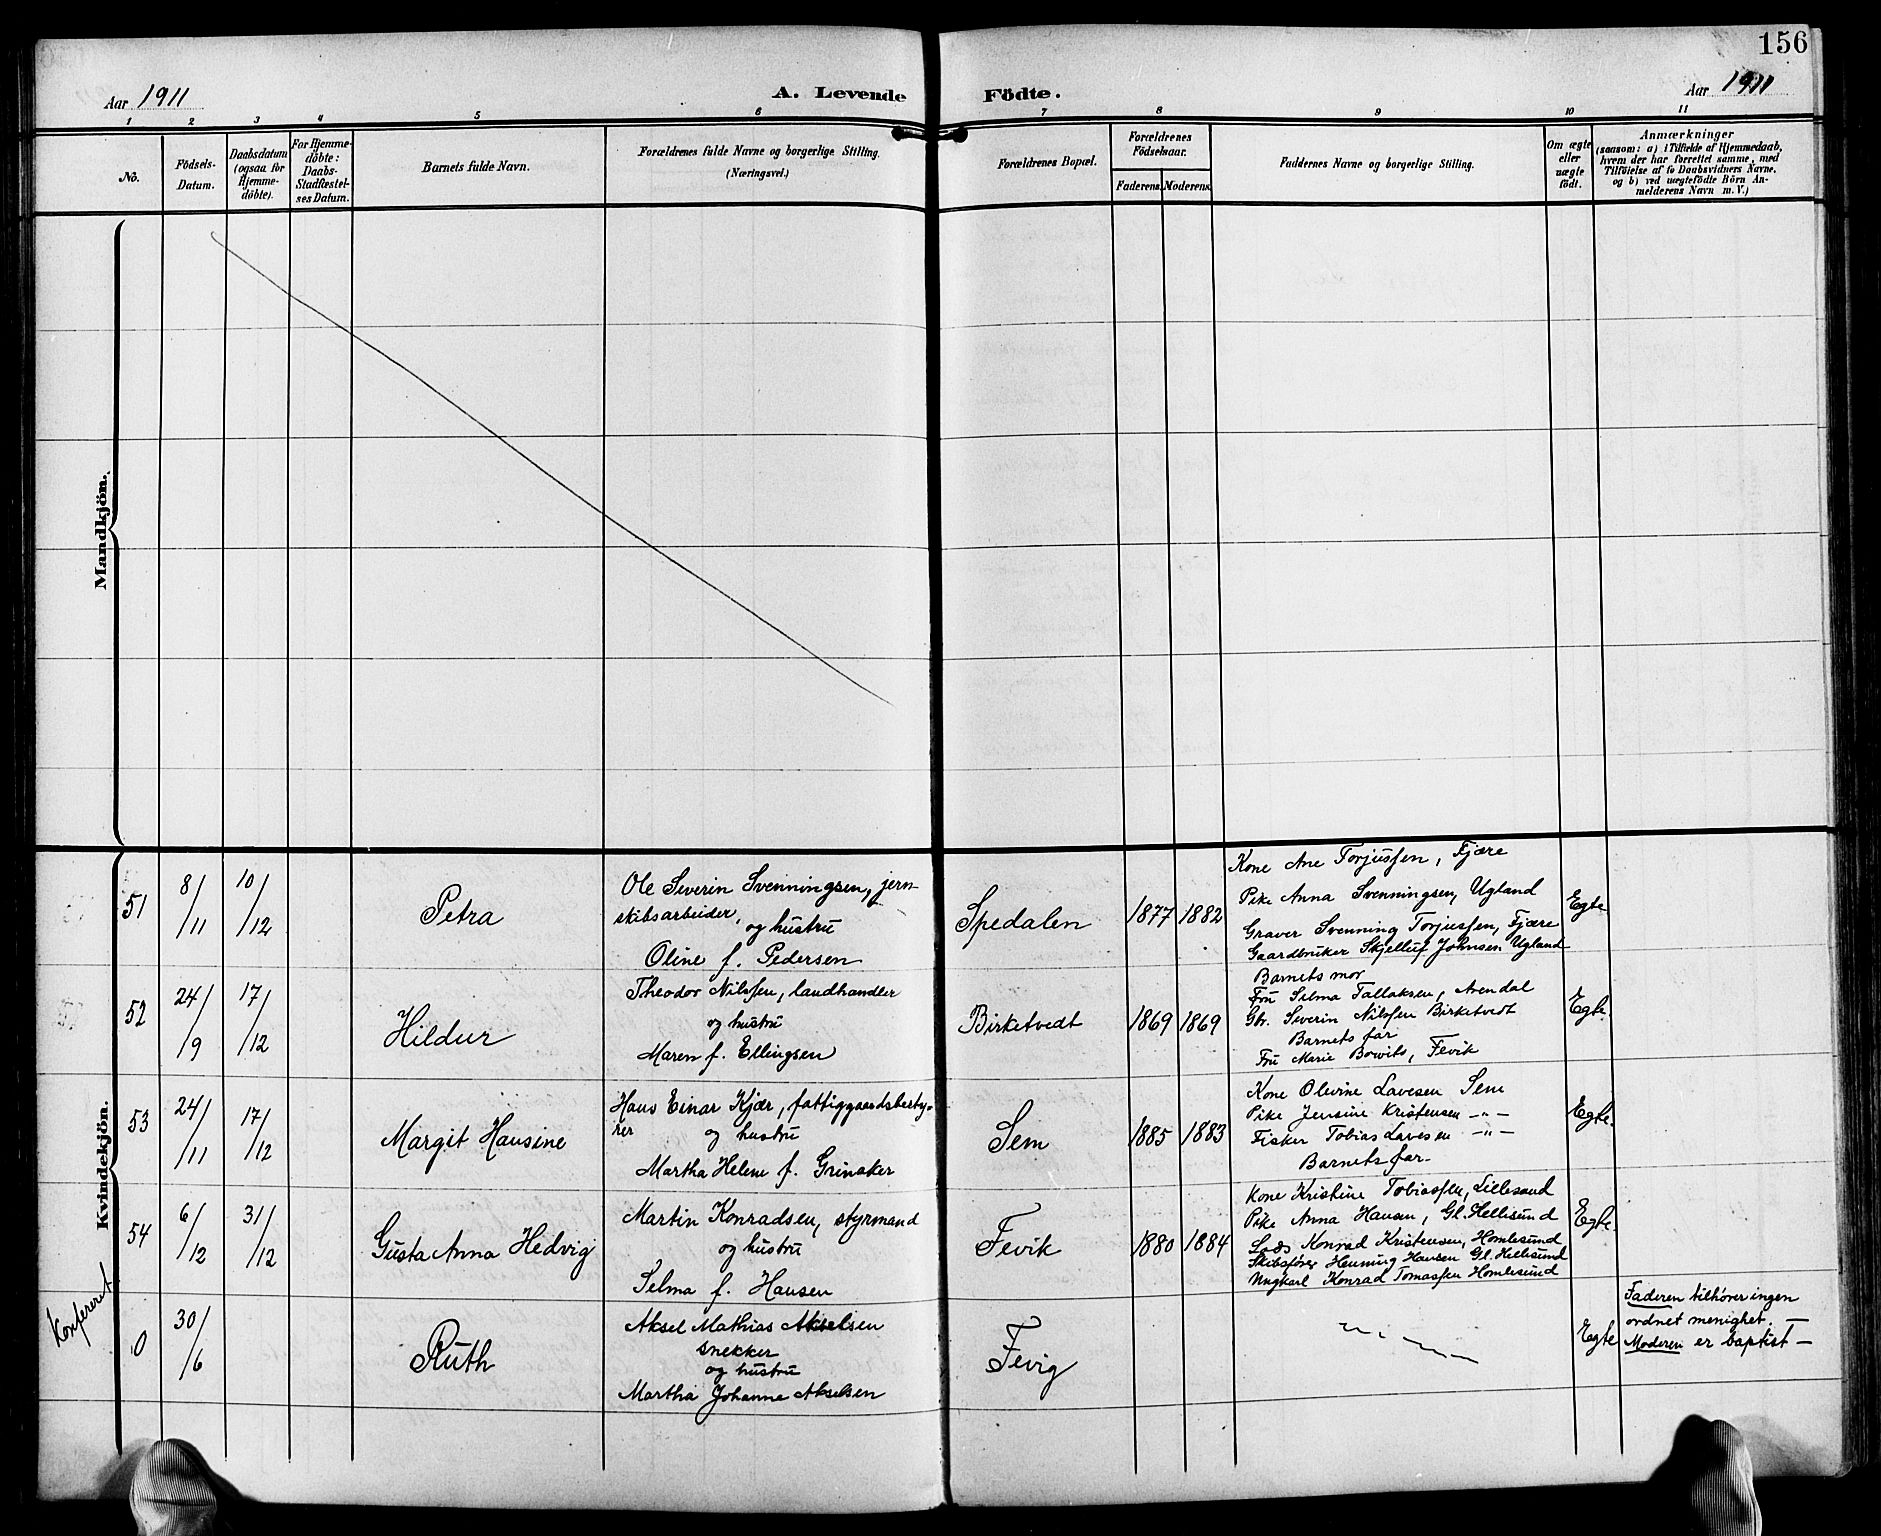 156
Aar 1911
A. Levende Födte.
Aar 1911
1 2 3 4 5 6 7 8 9 10 11
No.
Födsels-
Datum.
Daabsdatum
(ogsaa for
Hjemme-
döbte).
For Hjemme-
döbte:
Daabs-
Stadfæstel-
ses Datum.
Barnets fulde Navn.
Forældrenes fulde Navne og borgerlige Stilling.
(Næringsvei.)
Forældrenes Bopæl.
Forældrenes
Födselsaar.
Faderens.
Moderens.
Faddernes Navne og borgerlige Stilling.
Om ægte
eller
uægte
födt.
Anmærkninger
(saasom: a) i Tilfælde af Hjemmedaab,
hvem der har forrettet samme, med
Tilföielse af to Daabsvidners Navne.
og b) ved uægtefödte Börn An-
melderens Navn m. V.)
Mandkjön.
Kvindekjön.
51
8/11
10/12
Petra
Ole Severin Svenningsen, jern-
skibsarbeider,
og hustru
Oline f. Pedersen
Spedalen
1877
1882
Kone Ane Torjussen, Fjære
Pike Anna Svenningsen, Ugland
Graver Svenning Torjussen, Fjære
Gaardbruker Skjelluf Johnsen Ugland
Egte
52
24/9
17/12
Hildur
Theodor Nilssen, landhandler
og hustru
Maren f. Ellingsen
Birketvedt
1869
1869
Barnets mor
Fru Silma Tallaksen, Arendal
Gbr. Severin Nilssen Birketvedt
Barnets far
Fru Marie Bowits, Fevik
Egte.
53
24/11
17/12
Margit Hansine
Hans Einar Kjær, fattiggaardsbesty-
rer
og hustru
Martha Helene f. Grinaker
Sem
1885
1883
Kone Olevine Lavesen Sem
Pike Jensine Kristensen -"-
Fisker Tobias Lavesen -"-
Barnets far-
Egte.
54
6/12
31/12
Gusta Anna Hedvig
Martin Konradsen, styrmand
og hustru
Selma f. Hansen
Fevik
1880
1884
Kone Kristine Tobiassen, Lillesand
Pike Anna Hansen, Gl. Hellesund
Lods Konrad Kristensen, Homlesund
Skibsfører Henning Hansen Gl. Hellesund
Ungkarl Konrad Tomassen Homlesund
Egte.
Konfereret
0
30/6
Ruth
Aksel Mathias Akselsen
snekker
og hustru
Martha Johanne Akselsen
Fevig
Egte
Faderen tilhører ingen
ordnet menighet. —
Moderen er baptist —